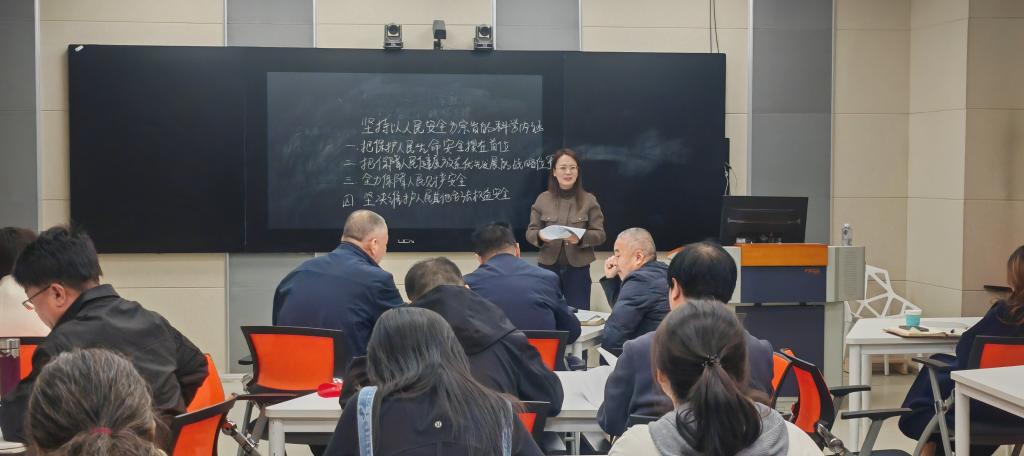 坚持以人民安全为宗旨的科学内涵
一. 把保护人民生命安全摆在首位
二. 把保障人民健康放在优先发展的战略位置
三 全力保障人民财产安全
四 坚决维护人民其他合法权益安全